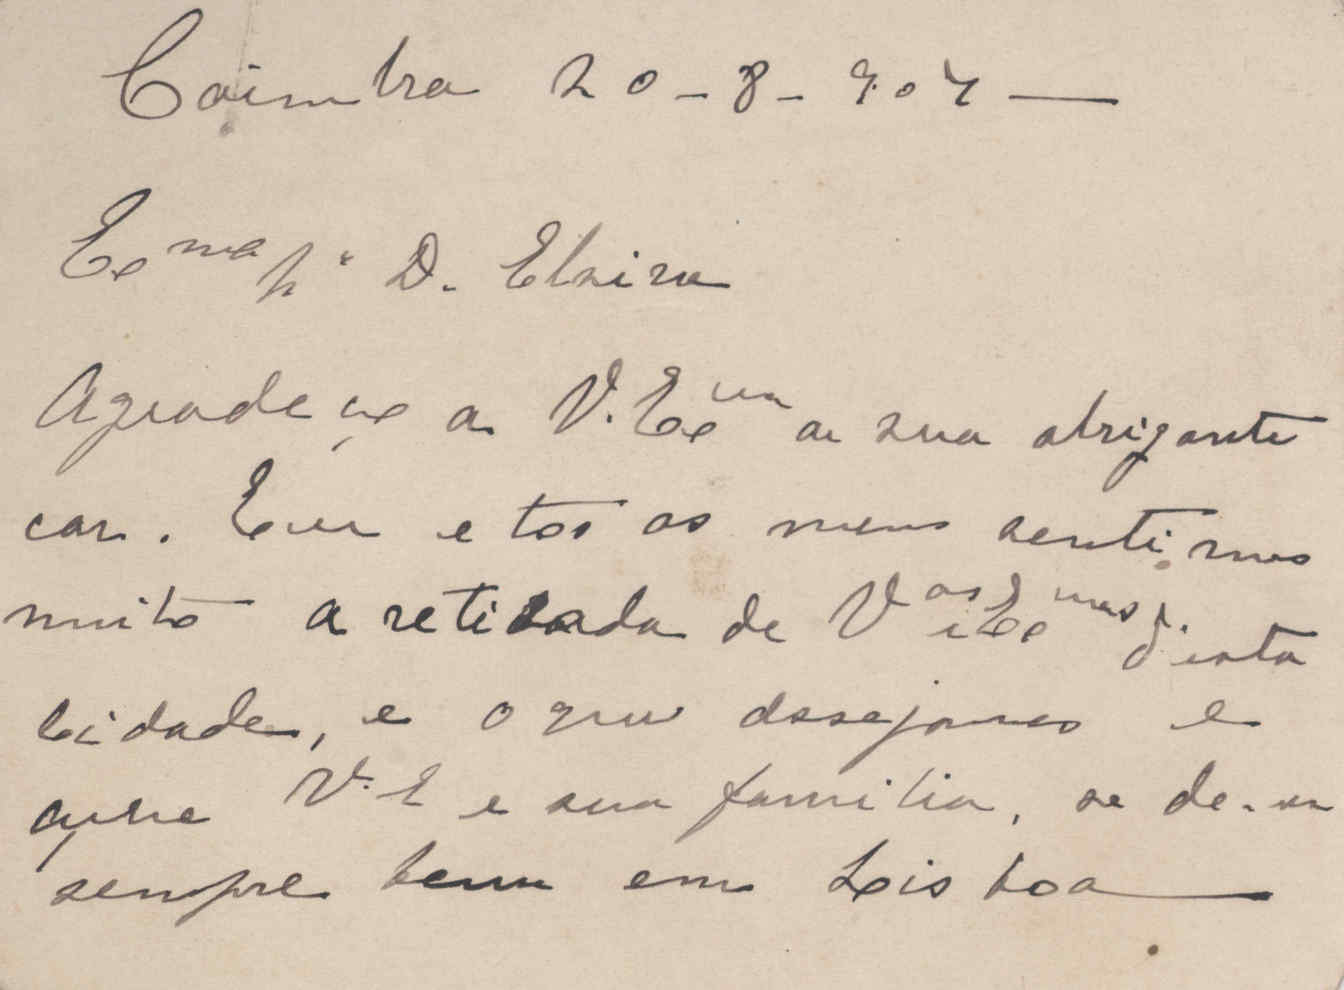 Coimbra 20-8-907
Ex.ma Sr.a D. Elvira
Agradeço a V. Ex.cia a sua obrigante
car. Eu e tos os meus sentimos
muito a retirada de V.as Ex.mas d'esta
cidade, e o que desejamos e
que V. E e sua familia, se de-em
sempre bem em Lisboa